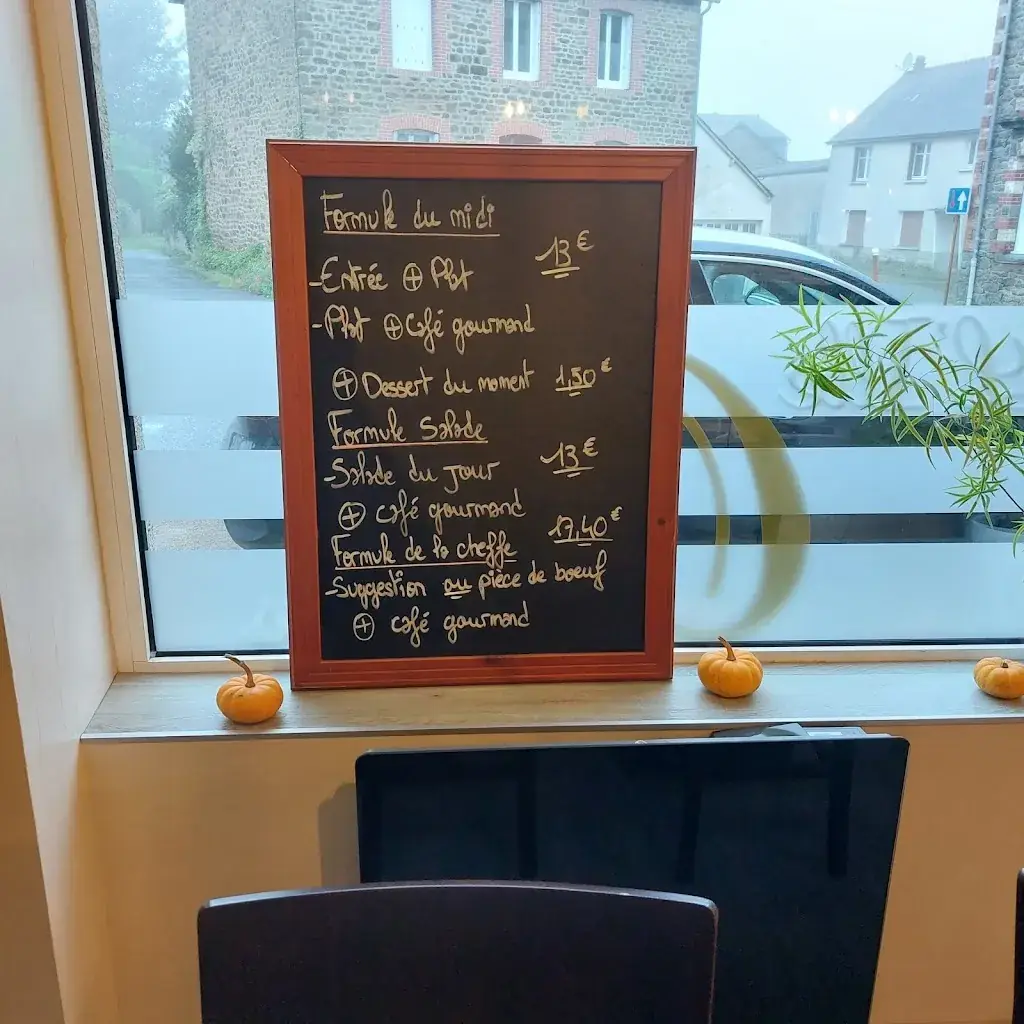 Formule du midi
13€
-Entrée + Plat
-Plat + Café gourmand
+ Dessert du moment 1,50€
Formule Salade
13€
-Salade du jour
+ café gourmand
17,40€
Formule de la cheffe
-Suggestion ou pièce de boeuf
+ café gourmand